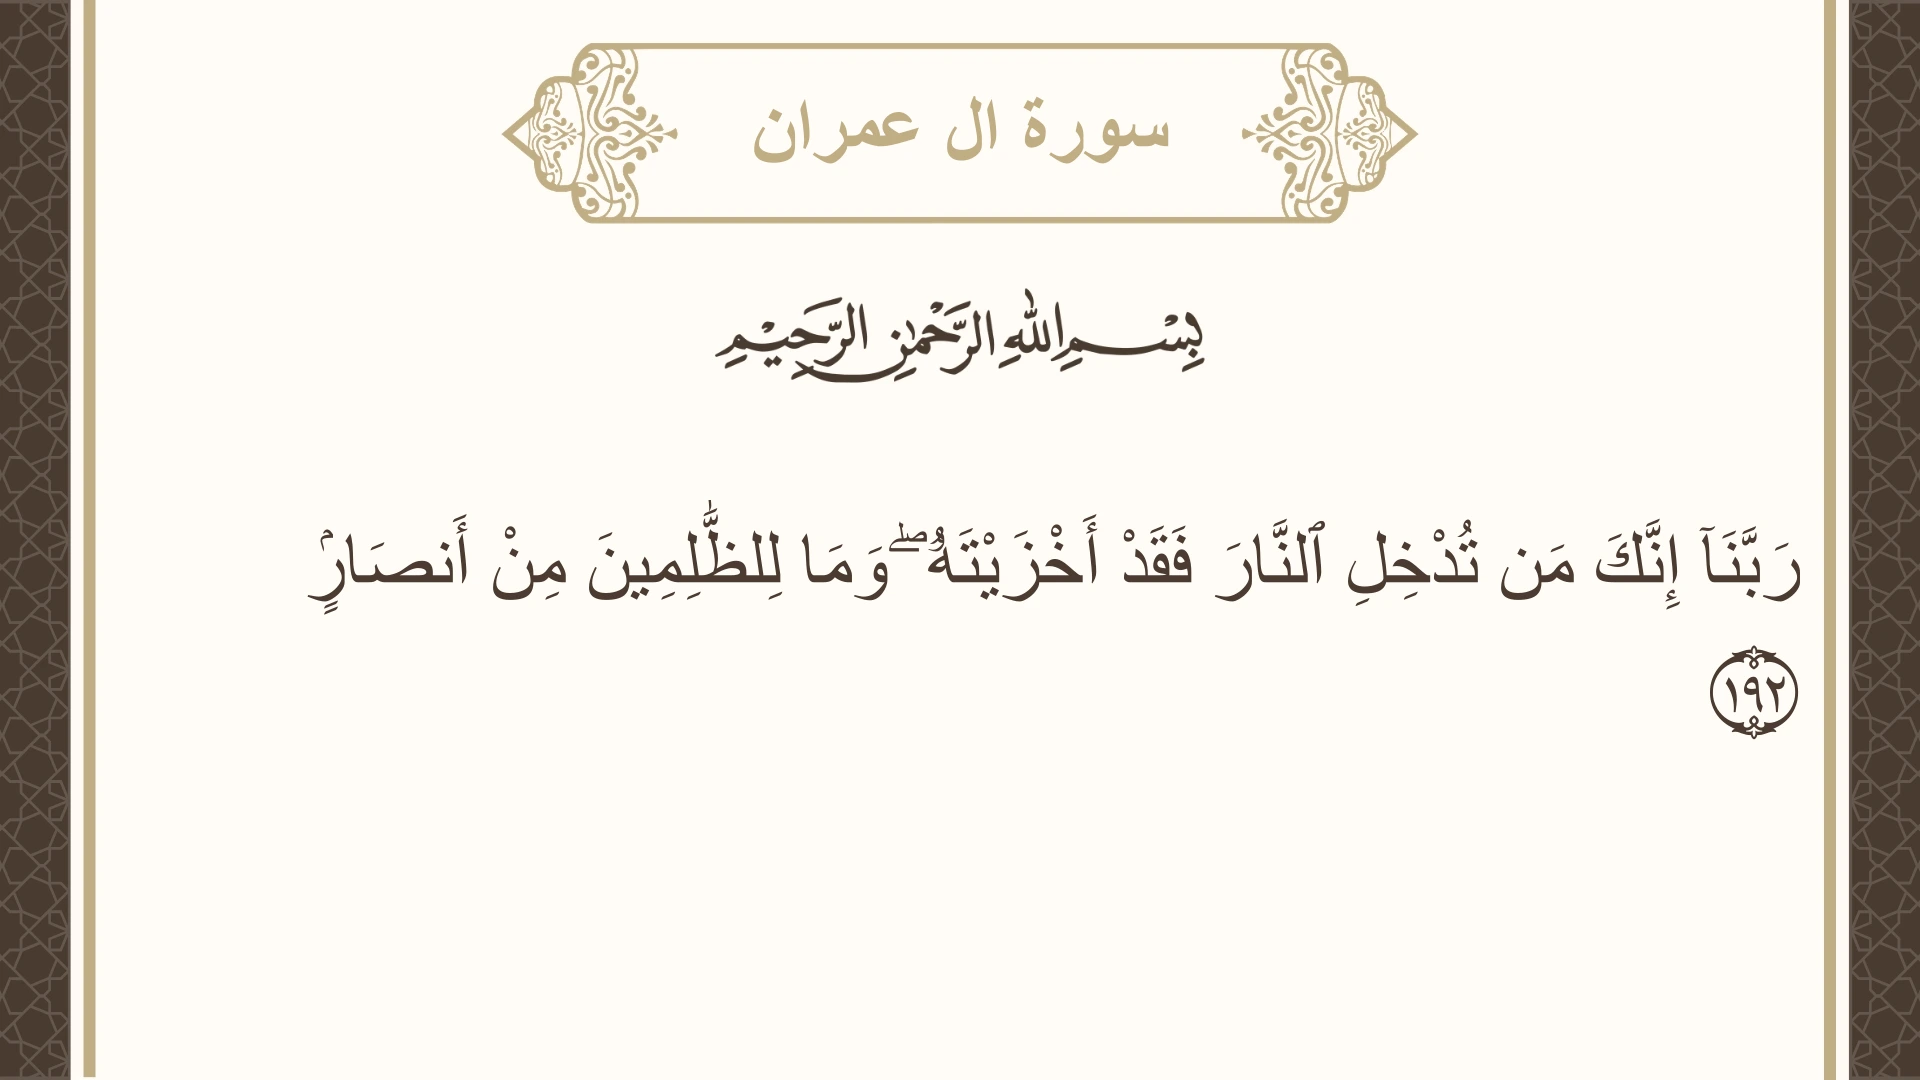 سورة ال عمران
بِسْمِ اللهِ الرَّحْمٰنِ الرَّحِيْمِ
رَبَّنَآ إِنَّكَ مَن تُدْخِلِ ٱلنَّارَ فَقَدْ أَخْزَيْتَهُۥ ۖ وَمَا لِلظَّٰلِمِينَ مِنْ أَنصَارٍۢ
١٩٢